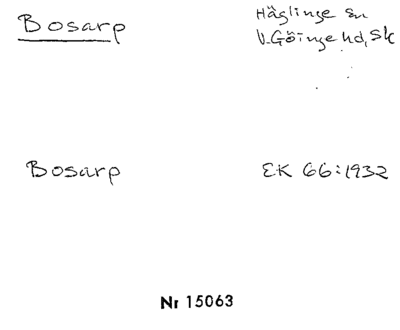 Bosarp
Häglinge sn
V. Göinge hd, Sk
Bosarp
EK 66:1932
Nr 15063